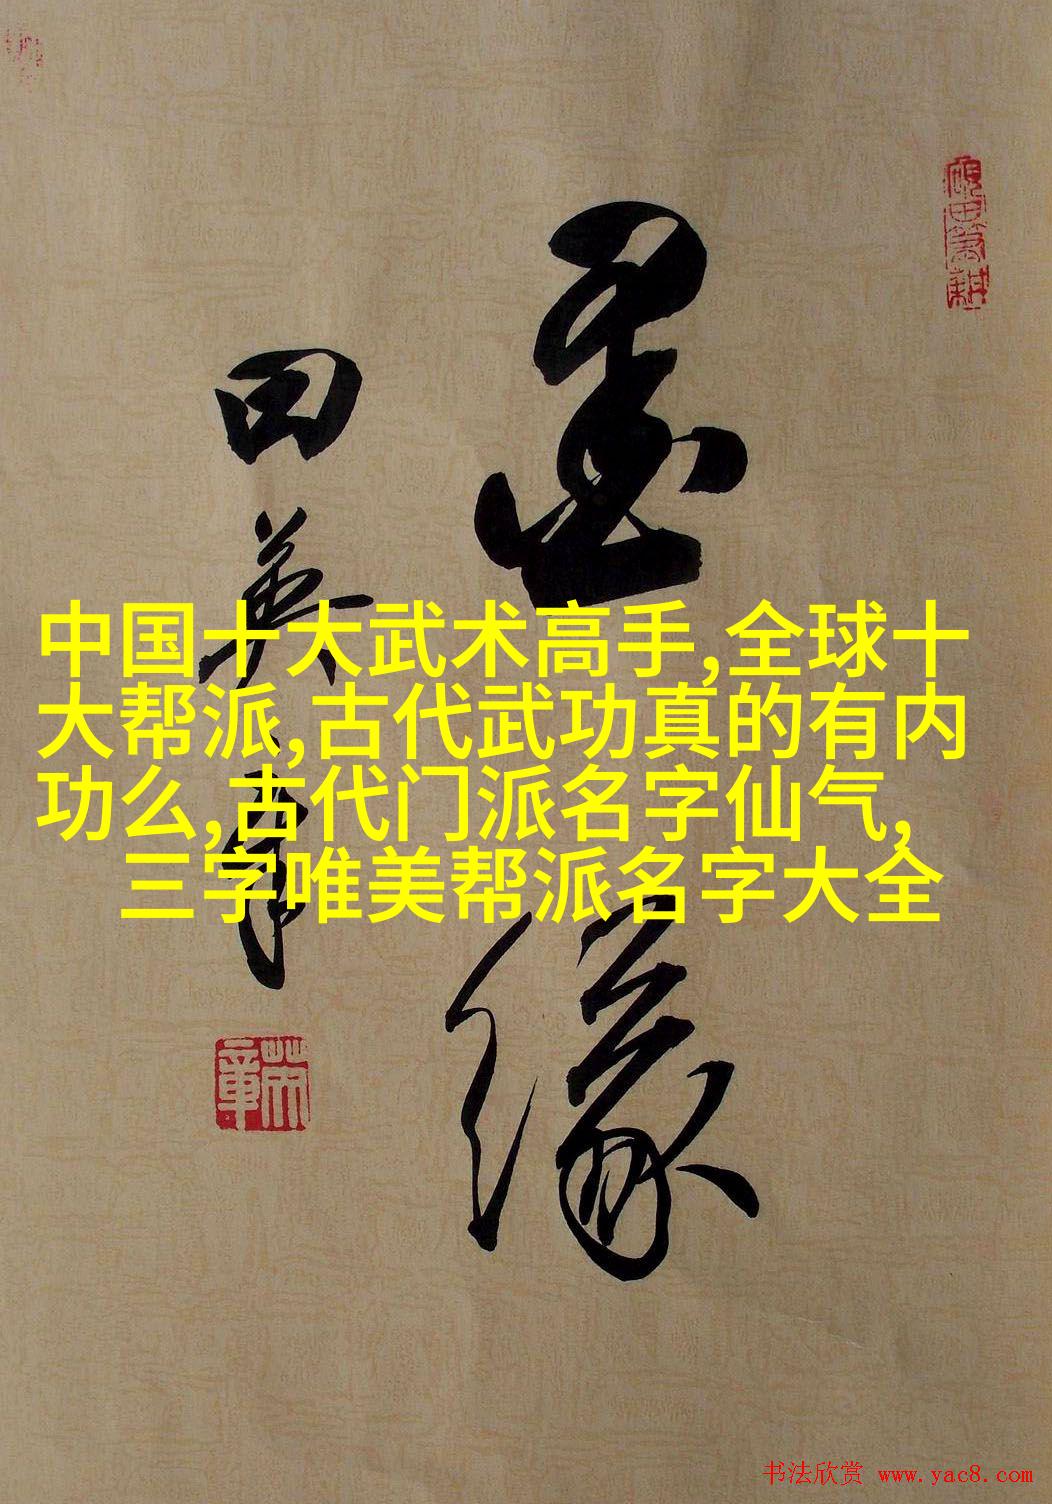 墨
缘
田
英
章
中国十大武术高手,全球十
大帮派,古代武功真的有内
功么,古代门派名字仙气,
三字唯美帮派名字大全
书法欣赏 www.yac8.com